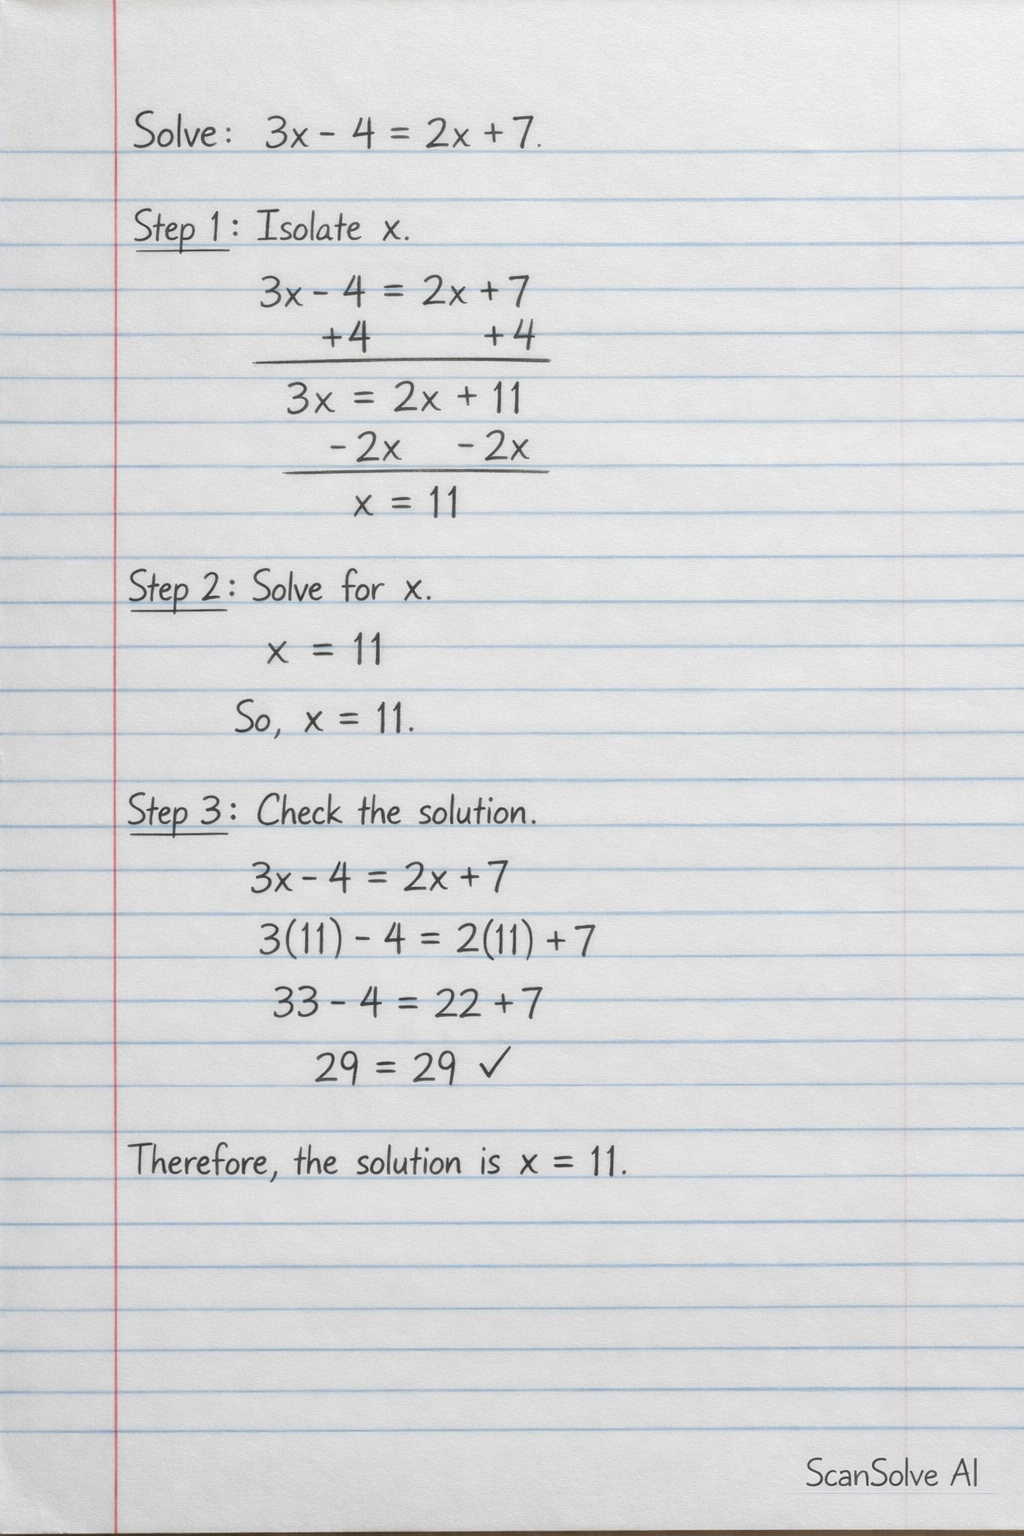 Solve: 3x - 4 = 2x + 7.
Step 1: Isolate x.
3x - 4 = 2x + 7
+4 +4
3x = 2x + 11
-2x -2x
x = 11
Step 2: Solve for x.
x = 11
So, x = 11.
Step 3: Check the solution.
3x - 4 = 2x + 7
3(11) - 4 = 2(11) + 7
33 - 4 = 22 + 7
29 = 29 ✓
Therefore, the solution is x = 11.
ScanSolve AI